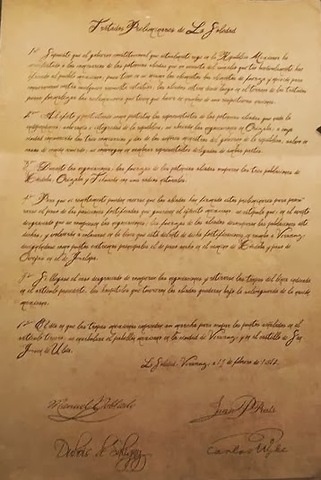 Tratados Preliminares de La Soledad
1º Supuesto que el gobierno constitucional que actualmente rige en la República Mexicana ha
manifestado a los comisarios de las potencias aliadas que no necesita del auxilio que tan benévolamente han
ofrecido al pueblo mexicano, pues tiene en sí mismo los elementos de fuerza y opinión para
conservarse contra cualquier revuelta intestina, los aliados entran desde luego en el terreno de los tratados
para formalizar las reclamaciones que tienen que hacer en nombre de sus respectivas naciones.
2º Al efecto y protestando como protestan los representantes de las potencias aliadas que nada
contra la independencia, soberanía e integridad de la república, se abrirán las negociaciones en Orizaba, a cuya
ciudad concurrirán los tres comisarios y dos de los señores ministros del gobierno de la república, salvo el
caso de mutuo acuerdo, se convenga en nombrar representantes delegados de ambas partes.
3º Durante las negociaciones, las fuerzas de las potencias aliadas ocuparán las tres poblaciones de
Córdoba, Orizaba y Tehuacán con sus radios naturales.
4º Para que ni remotamente pueda creerse que los aliados han firmado estos preliminares para
el paso de las posiciones fortificadas que guarnece el ejército mexicano, se estipula que, en el evento
desgraciado que se rompiesen las negociaciones, las fuerzas de los aliados desocuparán las poblaciones
dichas, y volverán a colocarse en la línea que está delante de dichas fortificaciones, en rumbo a Veracruz,
designándose como puntos extremos principales el de paso ancho en el camino de Córdoba y paso de
Ovejas en el de Jalapa.
5º Si llegase el caso desgraciado de romperse las negociaciones y retirarse las tropas
en el artículo precedente, los hospitales que tuvieren los aliados quedarán bajo la salvaguardia de la nación
mexicana.
6º El día en que las tropas emprendan su marcha para ocupar los puntos señalados en el
artículo tercero, se enarbolará el pabellón mexicano en la ciudad de Veracruz, y en el castillo de San
Juan de Ulúa.
La Soledad, Veracruz, a 19 de febrero de 1862.
Manuel Doblado
Juan P
Dubois de Saligny
Carlos Wyke